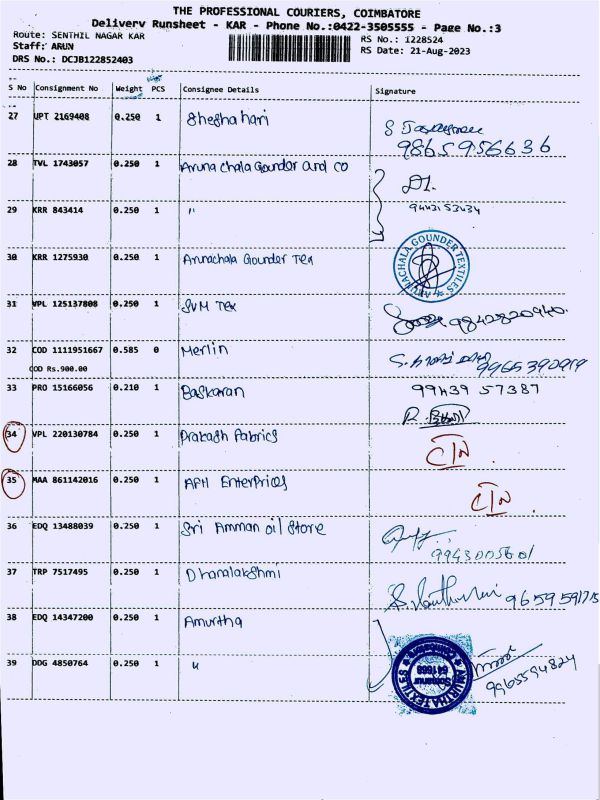 THE PROFESSIONAL COURIERS, COIMBATORE
Delivery Runsheet - KAR - Phone No.:0422-3505555 - Page No.:3
Route: SENTHIL NAGAR KAR
RS No.: 1228524
Staff: ARUN
RS Date: 21-Aug-2023
DRS No.: DCJB122852403
S No Consignment No Weight PCS Consignee Details Signature
27 UPT 2169408 0.250 1 Sheshahari
9865956636
28 TVL 1743057 0.250 1 Arunachala Gounder and Co
29 KRR 843414 0.250 1 "
9443153434
30 KRR 1275930 0.250 1 Arunachala Gounder Tex
ARUNACHALA GOUNDER TEXTILES
31 VPL 125137808 0.250 1 SVM Tex
9842820940.
32 COD 1111951667 0.585 0 Merlin
9965390919
COD Rs.900.00
33 PRO 15166056 0.210 1 Baskaran
99439 57387
34 VPL 220130784 0.250 1 Prakash Fabrics
C/N
35 MAA 861142016 0.250 1 APH Enterprises
C/N
36 EDQ 13488039 0.250 1 Sri Amman oil Store
9943005601
37 TRP 7517495 0.250 1 Dhanalakshmi
9659591715
38 EDQ 14347200 0.250 1 Amurtha
39 DDG 4850764 0.250 1 "
AMURTHA TEXTILES
Somanur
641668
9965594824